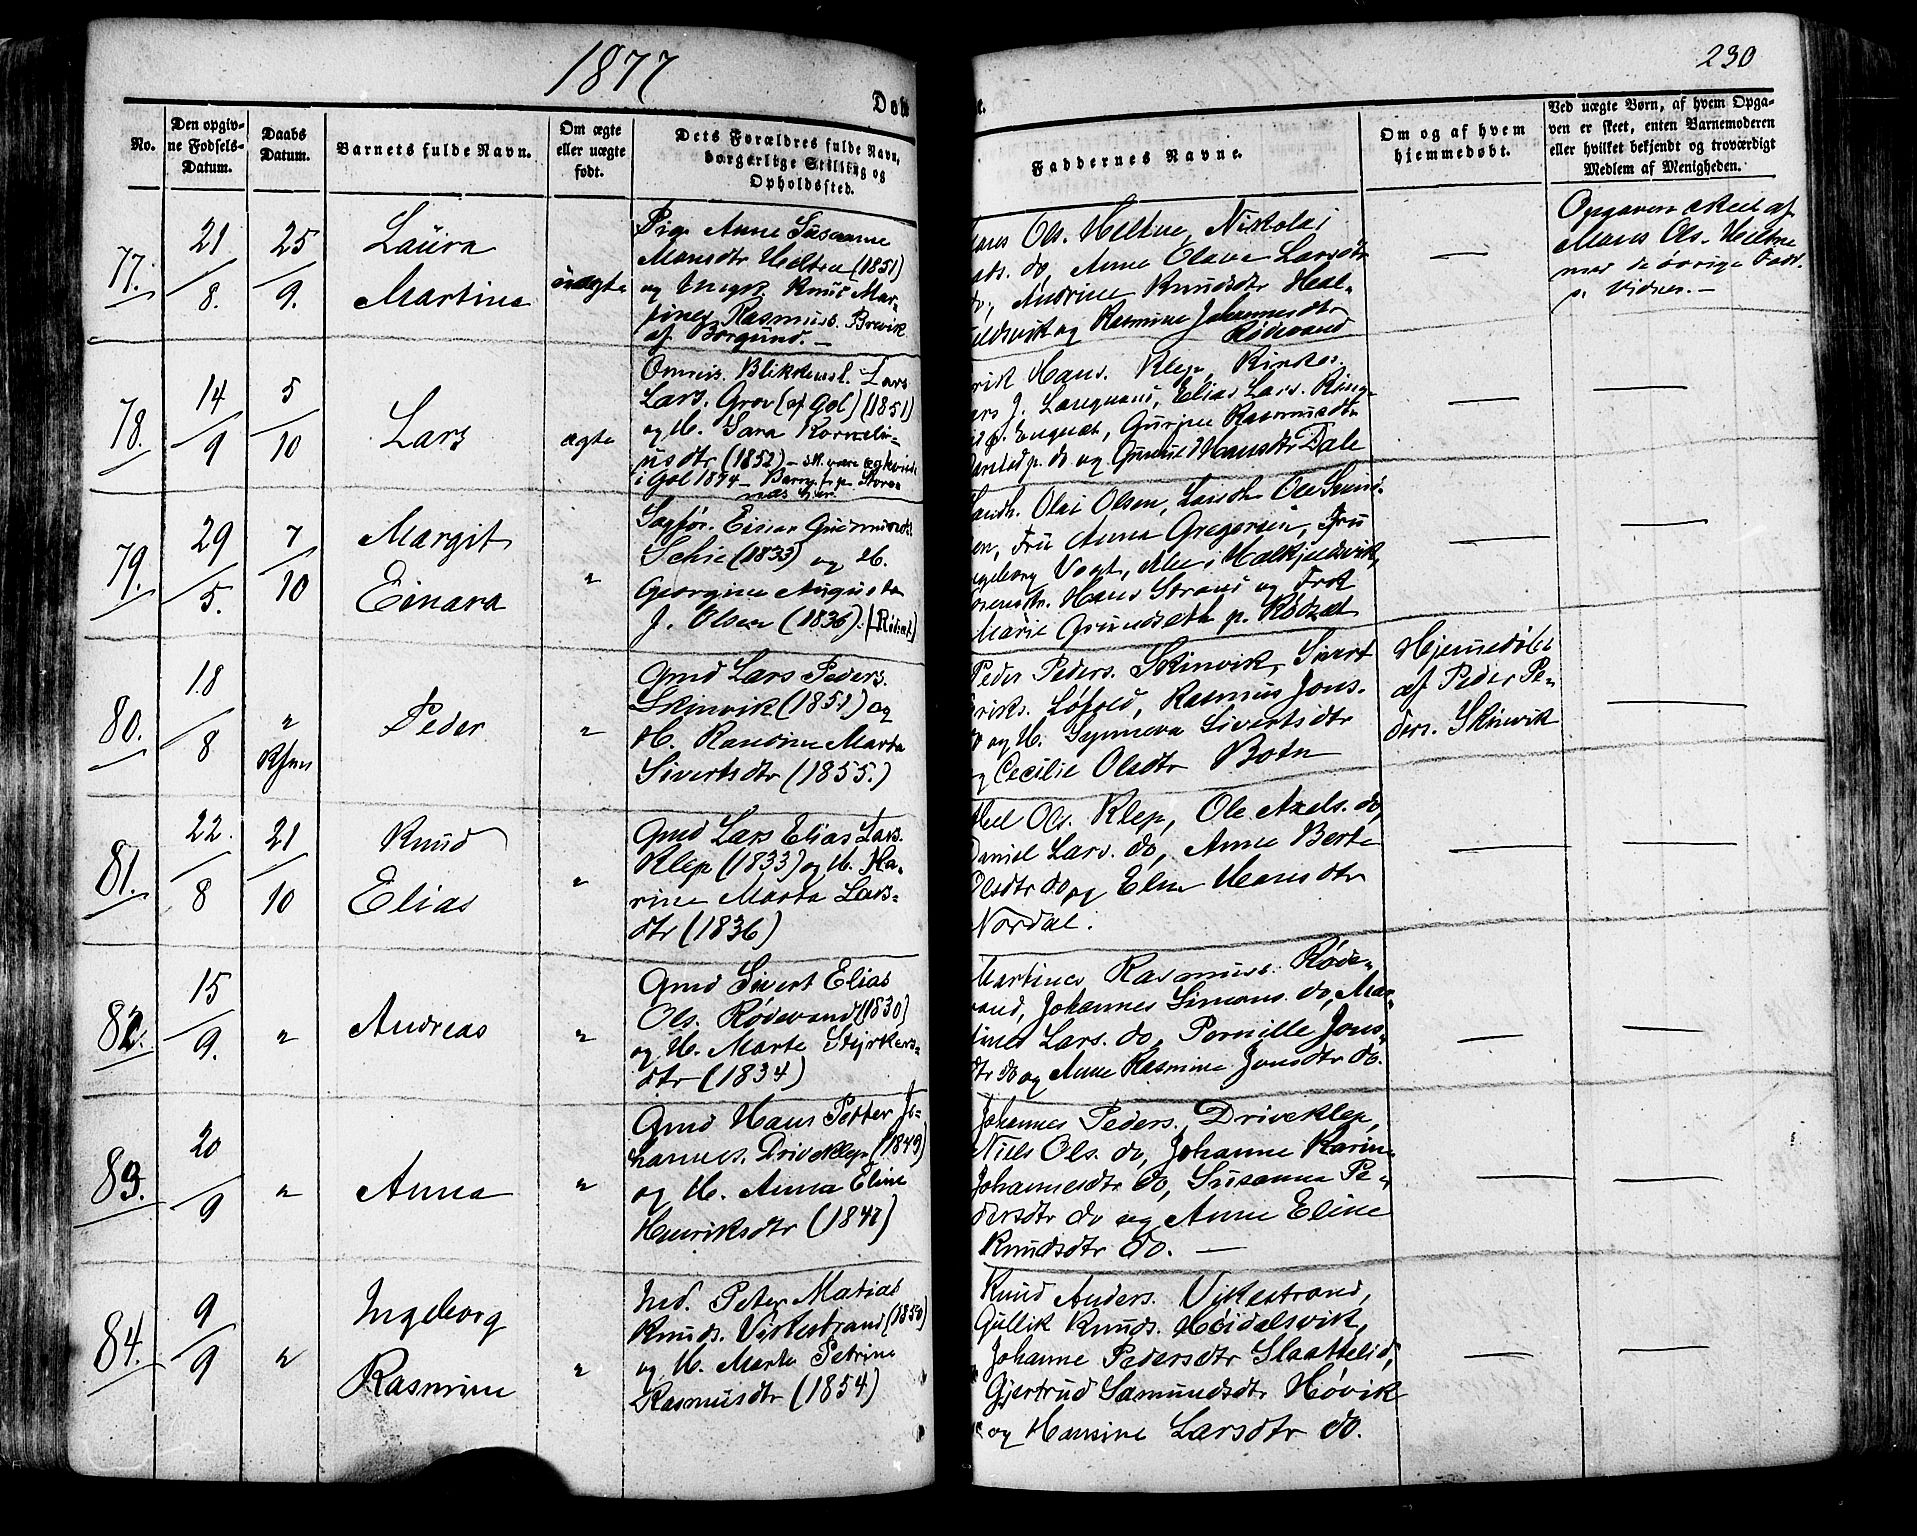 1877
230
Døb
No.
Den opgiv-
ne Fødsels-
Datum.
Daabs
Datum.
Barnets fulde Navn.
Om ægte
eller uægte
født.
Dets Forældres fulde Navn,
borgerlige Stilling og
Opholdssted.
Faddernes Navne.
Om og af hvem
hjemmedøbt.
Ved uægte Børn, af hvem Opga-
ven er skeet, enten Barnemoderen
eller hvilket bekjendt og troværdigt
Medlem af Menigheden.
77.
21/8.
25/9.
Laura
Martine
uægte
Pig. Anne Susanne
Monsdtr Heltne (1851)
og Ungk. Knut Mar-
tines Rasmuss. Brevik
af Borgund. —
Ols. Heltne, Nikolai
do, Anne Olave Larsdtr
do, Andrine Knudsdtr Hal-
og Rasmine Johannesdtr
Rødevand
—
Opgaven skeet af
Mons Ols. Heltne
med de øvrige Fadd.
s. Vidner. —
78.
14/9
5/10
Lars
ægte
Omreis. Blikkensl. Lars
Lars. Grov (af Gol) (1851)
og H. Sara Korneli-
usdtr (1852) —
i Gol 1874 —
Hans. Klep,
Elias Lars. Ring-
Gurine Rasmusdtr
do og Gunild Hansdtr Dale
—
—
79.
29/5.
7/10
Margit
Einara
"
Sagfør. Einar Gudmunds.
Schie (1833) og H.
Georgine Augusta
J. Olsen (1836).
Landh. Olai Olsen, Landh. Ole
Fru Anna Gregersen, Fru
Ingeborg Vogt,
Hans Strand og Frk
Marie Grundseth p. Rødsæt
—
—
80.
18/8
"
Kjver
Peder
"
Gmd Lars Peders.
Skinvik (1851) og
H. Randine Marta
Sivertsdtr (1855.)
Peder Peders. Skinvik, Sivert
Eriks. Løfold, Rasmus Jons.
do og H. Synneva Sivertsdtr
og Cecilie Olsdtr Botn
Hjemmedøbt
af Peder Pe-
ders. Skinvik
—
81.
22./8
21/10
Knud
Elias
"
Gmd Lars Elias Lars.
Klep (1833) og H. Ka-
rine Marta Lars-
dtr (1836)
Axel Ols. Klep, Ole Axels. do,
Daniel Lars. do, Anne Berte
Olsdtr do og Eline Hansdtr
Nordal.
—
—
82.
15/9.
"
Andreas
"
Gmd Sivert Elias
Ols. Rødevand (1830)
og H. Marte Styrkers-
dtr (1834)
Martines Rasmuss. Røde-
vand, Johannes Simons. do, Mar-
tines Lars. do, Pernille Jons-
dtr do og Anne Rasmine Jonsdtr do.
—
—
83.
20/9
"
Anna
"
Gmd Hans Petter Jo-
hannes. Driveklep (1849)
og H. Anna Eline
Henriksdtr (1847)
Johannes Peders. Driveklep,
Niels Ols. do, Johanne Karine
Johannesdtr do, Susanna Pe-
dersdtr do og Anne Eline
Knudsdtr do. —
—
—
84.
9/9
"
Ingeborg
Rasmine
"
Ind. Peter Matias
Knuds. Vikestrand (1850)
og H. Marte Petrine
Rasmusdtr (1854)
Knud Anders. Vikestrand,
Gullik Knuds. Høidalsvik,
Johanne Pedersdtr Slaattelid,
Gjertrud Samundsdtr Høvik
og Hansine Larsdtr do.
—
—